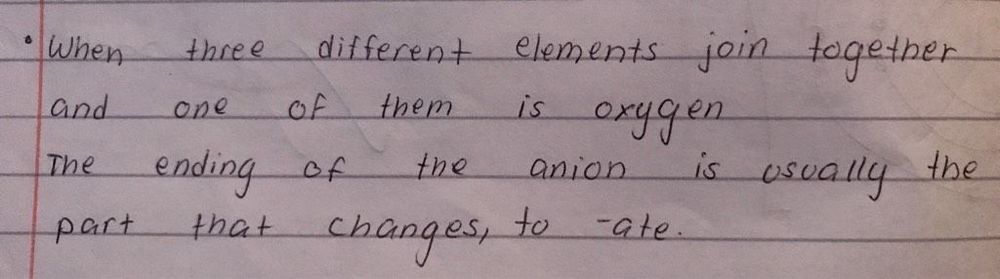 • When three different elements join together
and one of them is oxygen
The ending of the anion is usually the
part that changes, to -ate.